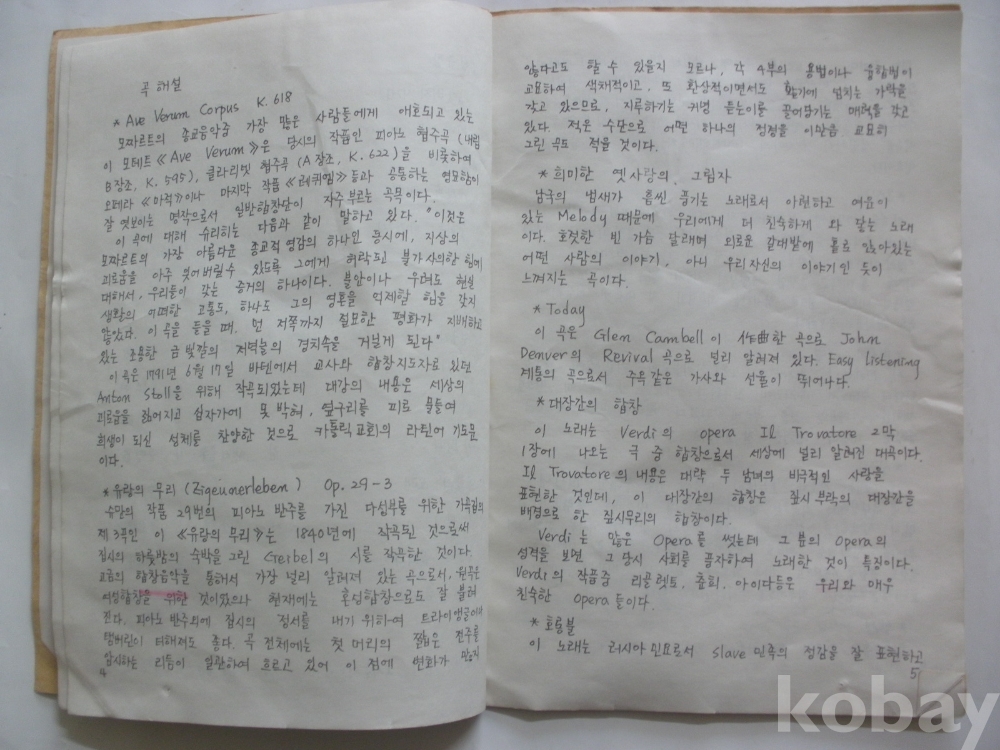 곡 해설
* Ave Verum Corpus K. 618
모짜르트의 종교음악중 가장 많은 사람들에게 애호되고 있는
이 모테트《Ave Verum》은 당시의 작품인 피아노 협주곡 (내림
B장조, K. 595), 클라리넷 협주곡 (A장조, K. 622)을 비롯하여
오페라 《마적》이나 마지막 작품《레퀴엠》등과 공통하는 영묘함이
잘 엿보이는 명작으로서 일반합창단이 자주 부르는 곡목이다.
이 곡에 대해 슈리히는 다음과 같이 말하고 있다. "이것은
모짜르트의 가장 아름다운 종교적 영감의 하나인 동시에, 지상의
괴로움을 아주 씻어버릴수 있도록 그에게 허락된 불가사의한 힘에
대해서, 우리들이 갖는 증거의 하나이다. 불안이나 우려도 현실
생활의 어떠한 고통도, 하나도 그의 영혼을 억제할 힘을 갖지
않았다. 이 곡을 들을 때, 먼 저쪽까지 절묘한 평화가 지배하고
있는 조용한 금빛깔의 저녁놀의 경치속을 거닐게 된다"
이 곡은 1791년 6월 17일 바덴에서 교사와 합창지도자로 있던
Anton Stoll을 위해 작곡되었는데 대강의 내용은 세상의
괴로움을 짊어지고 십자가에 못 박혀, 옆구리를 피로 물들여
희생이 되신 성체를 찬양한 것으로 카톨릭 교회의 라틴어 기도문
이다.
*유랑의 무리 (Zigeunerleben) Op. 29-3
슈만의 작품 29번의 피아노 반주를 가진 다섯부를 위한 가곡집의
제 3곡인 이 《유랑의 무리》는 1840년에 작곡된 것으로써
집시의 하룻밤의 숙박을 그린 Geibel의 시를 작곡한 것이다.
합창음악을 통해서 가장 널리 알려져 있는 곡으로서, 원곡은
여성합창을 위한 것이었으나 현재에는 혼성합창으로도 잘 불려
진다. 피아노 반주외에 집시의 정서를 내기 위하여 트라이앵글이나
탬버린이 더해져도 좋다. 곡 전체에는 첫 머리의 짧은 전주를
암시하는 리듬이 일관하여 흐르고 있어 이 점에 변화가 많지
4
않다고도 할 수 있을지 모르나, 각 4부의 용법이나 융합법이
교묘하여 색채적이고, 또 환상적이면서도 활기에 넘치는 가락을
갖고 있으므로, 지루하기는 커녕 듣는이를 끌어당기는 매력을 갖고
있다. 적은 수만으로 어떤 하나의 정경을 이만큼 교묘히
그린 곡도 적을 것이다.
* 희미한 옛사랑의 그림자
남국의 냄새가 흠씬 풍기는 노래로서 아련하고 여운이
있는 Melody 때문에 우리에게 더 친숙하게 와 닿는 노래
이다. 호젓한 빈 가슴 달래며 외로운 갈대밭에 홀로 앉아있는
어떤 사람의 이야기, 아니 우리 자신의 이야기인 듯이
느껴지는 곡이다.
* Today
이 곡은 Glen Cambell이 作曲한 곡으로 John
Denver의 Revival곡으로 널리 알려져 있다. Easy Listening
계통의 곡으로서 주옥같은 가사와 선율이 뛰어나다.
* 대장간의 합창
이 노래는 Verdi의 opera Il Trovatore 2막
1장에 나오는 극 중 합창으로서 세상에 널리 알려진 대곡이다.
Il Trovatore의 내용은 대략 두 남녀의 비극적인 사랑을
표현한 것인데, 이 대장간의 합창은 짚시 부락의 대장간을
배경으로 한 짚시무리의 합창이다.
Verdi는 많은 Opera를 썼는데 그 분의 Opera의
성격을 보면 그 당시 사회를 풍자하여 노래한 것이 특징이다.
Verdi의 작품중 리골렛토, 춘희, 아이다등은 우리와 매우
친숙한 Opera들이다.
* 호롱불
이 노래는 러시아 민요로서 slave 민족의 정감을 잘 표현하고
5
kobay